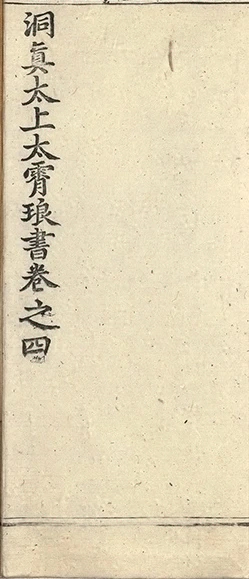 洞眞太上太霄琅書卷之四